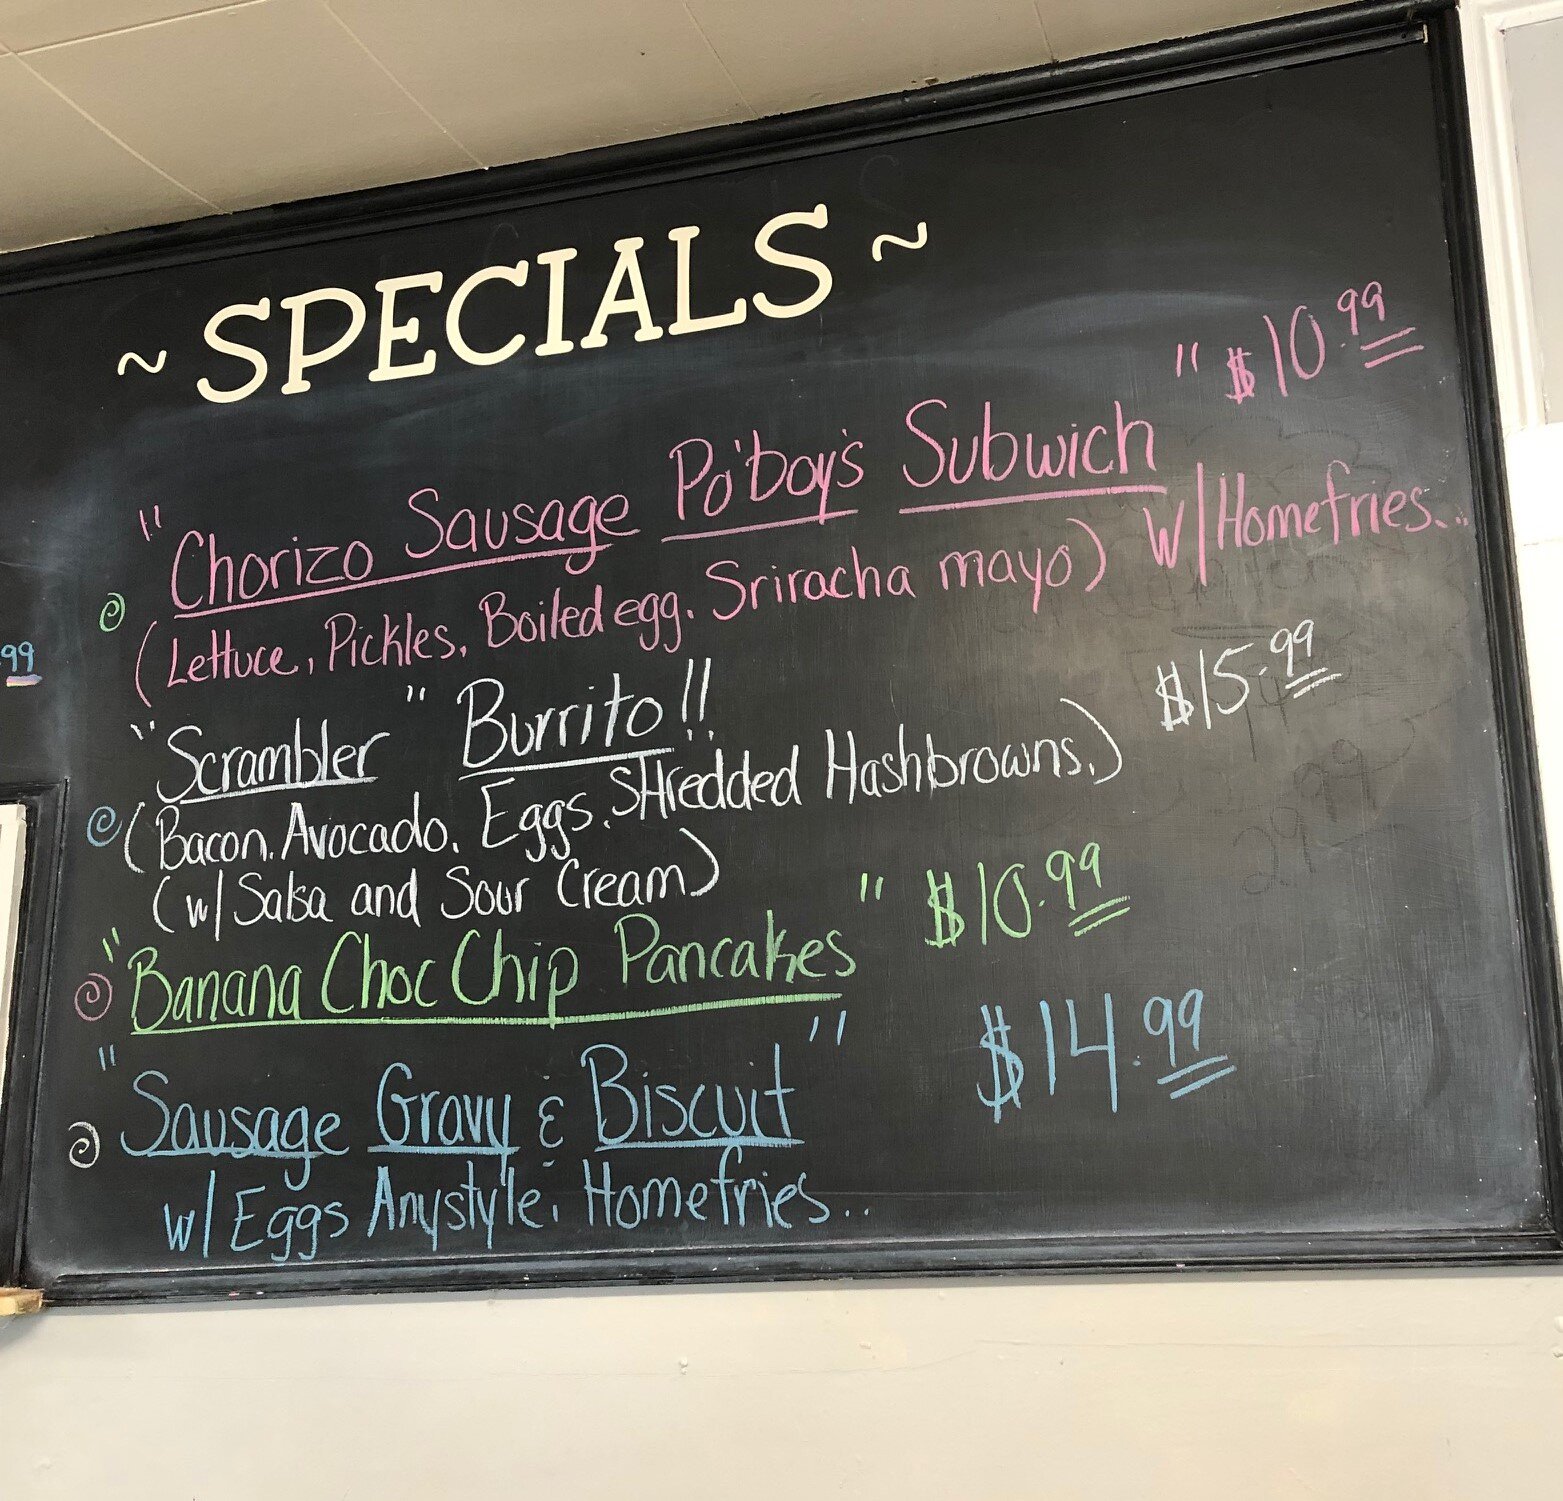 ~ SPECIALS ~
"Chorizo Sausage Po'boy's Subwich" $10.99
(Lettuce, Pickles, Boiled egg, Sriracha mayo) W/Homefries...
"Scrambler" Burrito!! $15.99
(Bacon, Avocado, Eggs, SHredded Hashbrowns,)
(w/Salsa and Sour Cream)
"Banana Choc Chip Pancakes" $10.99
"Sausage Gravy & Biscuit" $14.99
w/Eggs Anystyle, Homefries...
99